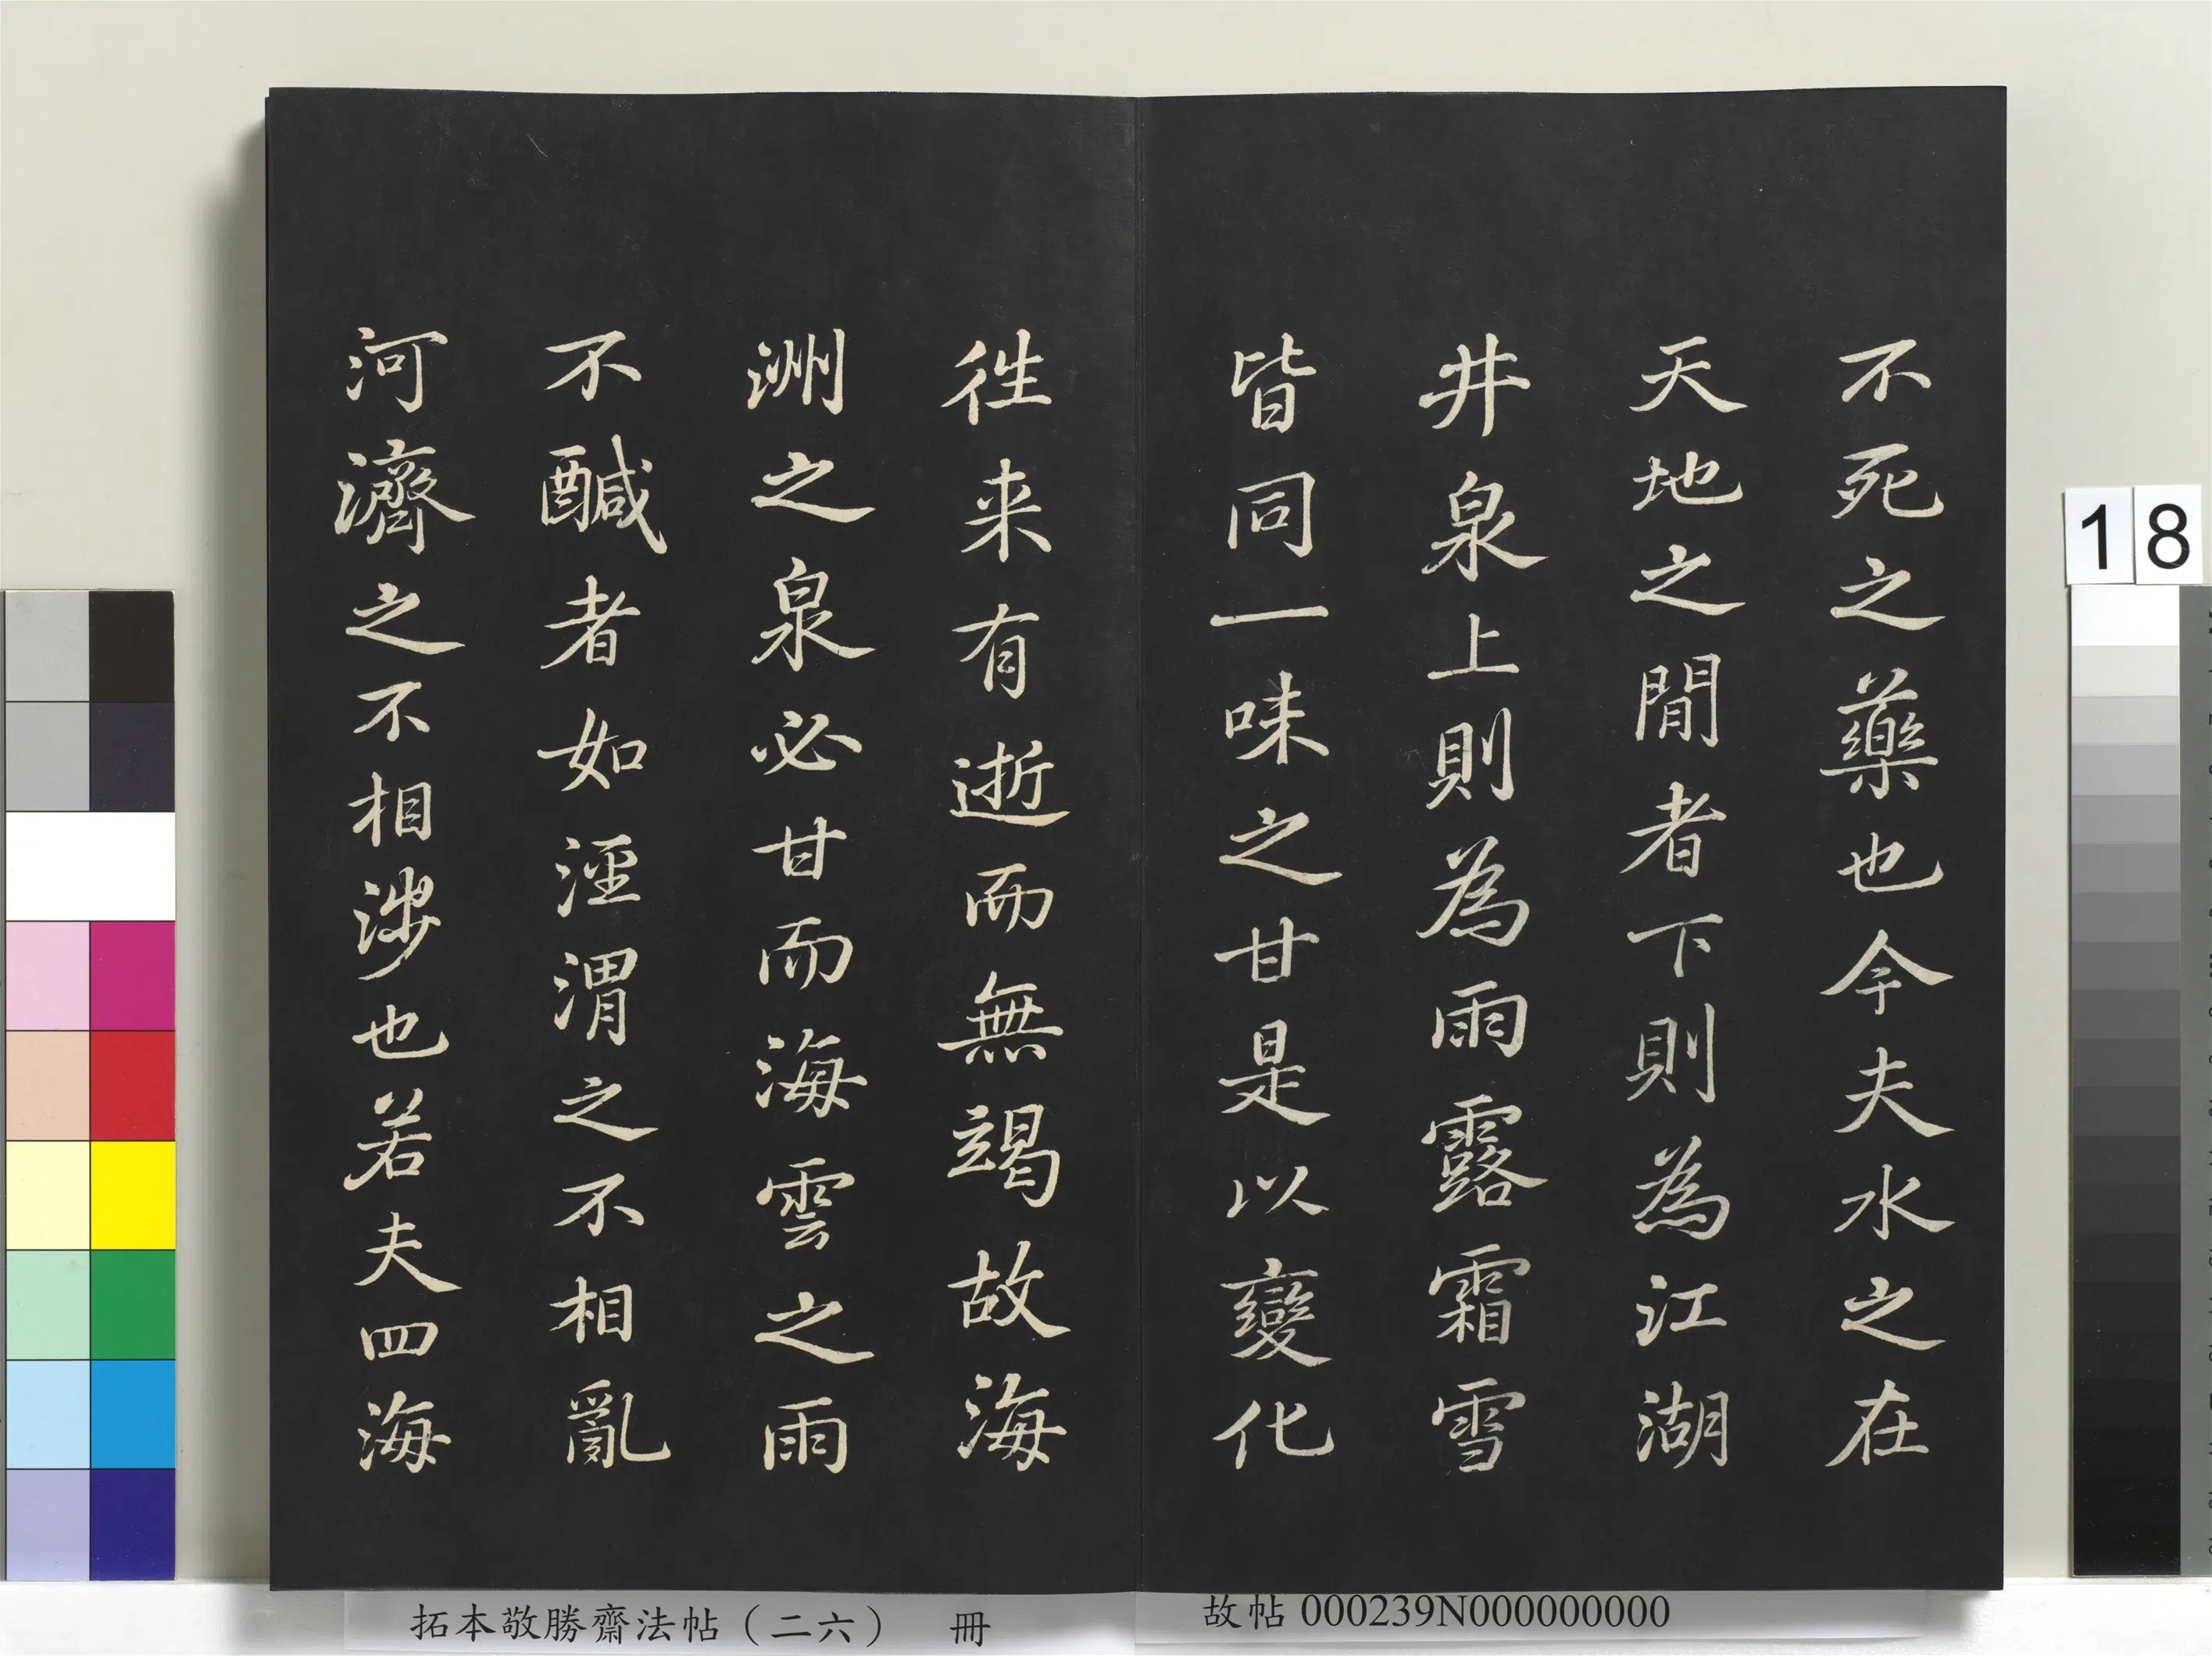 不死之藥也今夫水之在
天地之閒者下則為江湖
井泉上則為雨露霜雪
皆同一味之甘是以變化
徃来有逝而無竭故海
洲之泉必甘而海雲之雨
不醎者如涇渭之不相亂
河濟之不相涉也若夫四海
拓本敬勝齋法帖（二六） 冊
故帖000239N000000000
18